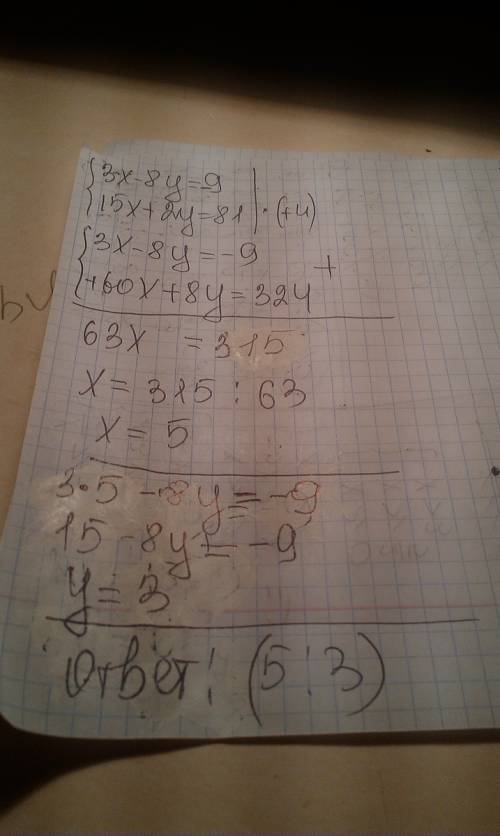 {3x-8y=9
{15x+2y=81 | ·(+4)
{3x-8y=-9
{+60x+8y=324 +
63x = 315
x = 315 : 63
x = 5
3·5 - 8y = -9
15 - 8y = -9
y = 3
Ответ: (5;3)